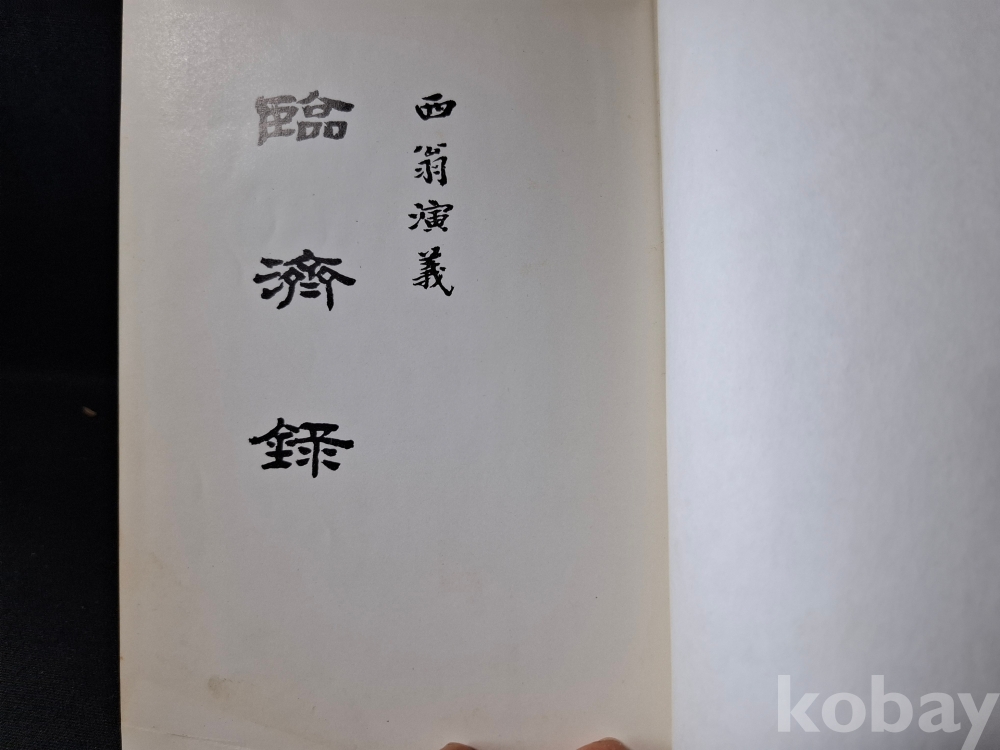 西翁演義
臨濟錄
kobay